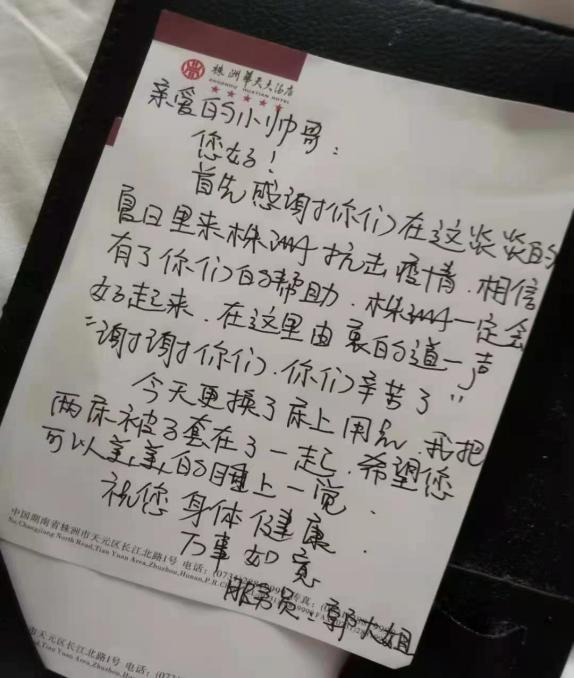 株洲华天大酒店
ZHUZHOU HUATIAN HOTEL
亲爱的小帅哥：
您好！
首先感谢你们在这炎炎的
夏日里来株洲抗击疫情.相信
有了你们的帮助.株洲一定会
好起来.在这里由衷的道一声
“谢谢你们.你们辛苦了”
今天更换了床上用品.我把
两床被子套在了一起.希望您
可以美美的睡上一觉.
祝您身体健康.
万事如意
服务员：郭大姐
中国湖南省株洲市天元区长江北路1号 电话：(0731)
No.Changjiang North Road,Tian Yuan Area,Zhuzhou,Hunan,P.R.C
市天元区长江北路1号 电话：
Yuan Area,Zhuzhou,Hunan